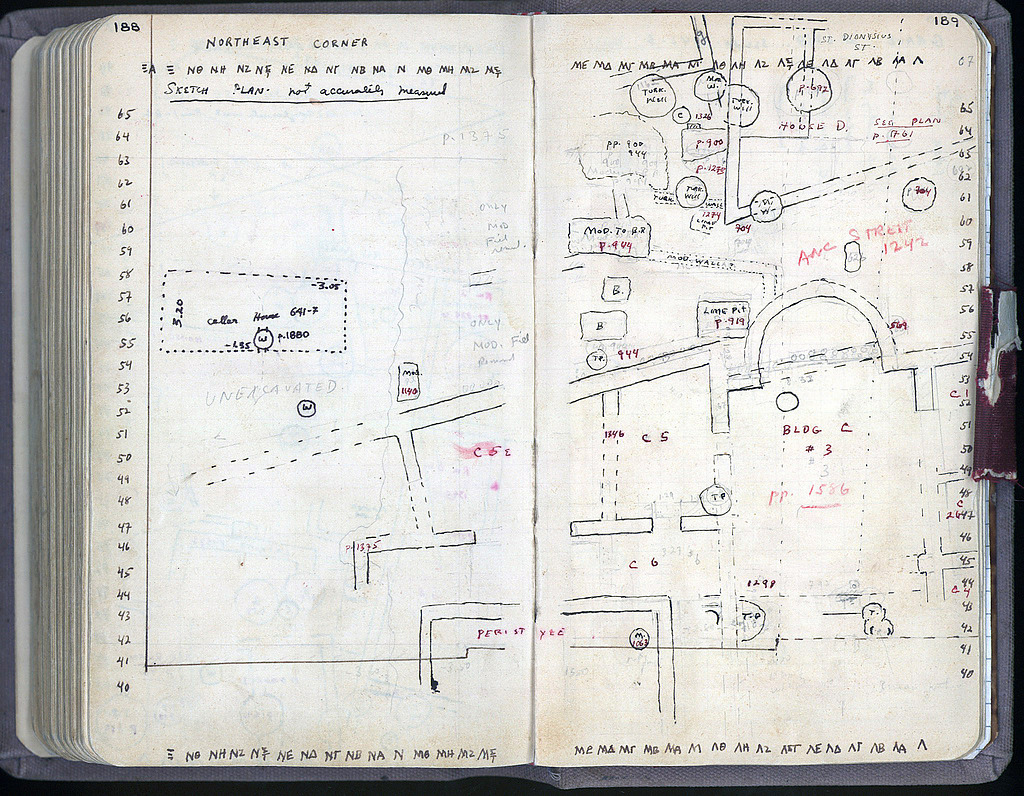 188
NORTHEAST CORNER
ΞΑ Ξ ΝΘ ΝΗ ΝΖ ΝΕ ΝΔ ΝΓ ΝΒ ΝΑ Ν ΜΘ ΜΗ ΜΖ
SKETCH PLAN. not accurately measured
65
64
63
62
61
60
59
58
57
56
55
54
53
52
51
50
49
48
47
46
45
44
43
42
41
40
p. 1375
ONLY
MOD
Fill
-3.05
3.20
cellar House 641-7
W
p. 1880
-1.35
ONLY
MOD. Fill
Removed
MOD.
1140
UNEXCAVATED.
W
C 5 E
P. 1375
PERISTYLE
Ξ ΝΘ ΝΗ ΝΖ ΝΕ ΝΔ ΝΓ ΝΒ ΝΑ Ν ΜΘ ΜΗ ΜΖ
189
ST. DIONYSIUS
ST.
ΜΕ ΜΔ ΜΓ ΜΒ ΜΑ ΛΘ ΛΗ ΛΖ ΛΕ ΛΔ ΛΓ ΛΒ ΛΑ Λ
67
TURK.
WELL
MOD.
W.
TURK.
WELL
P. 692
C
1326
HOUSE D.
SEE PLAN
P. 1761
65
64
63
62
61
60
59
58
57
56
55
54
53
52
51
50
49
48
47
46
45
44
43
42
41
40
PP. 900
944
P. 900
P. 1275
TURK.
WELL
TURK. WALL
1274
LIME
PIT
W
704
P. 704
MOD. TO B.R
P. 944
ANC STREET
1242
MOD. WALL
B.
B
LIME PIT
P. 919
569
T.P.
944
C 1
BLDG C
# 3
1346
C 5
# 3
PP. 1586
T.P
C
C 6
1298
C 4
T.P
T.
M.
1063
ΜΕ ΜΔ ΜΓ ΜΒ ΜΑ Μ ΛΘ ΛΗ ΛΖ ΛΕ ΛΔ ΛΓ ΛΒ ΛΑ Λ